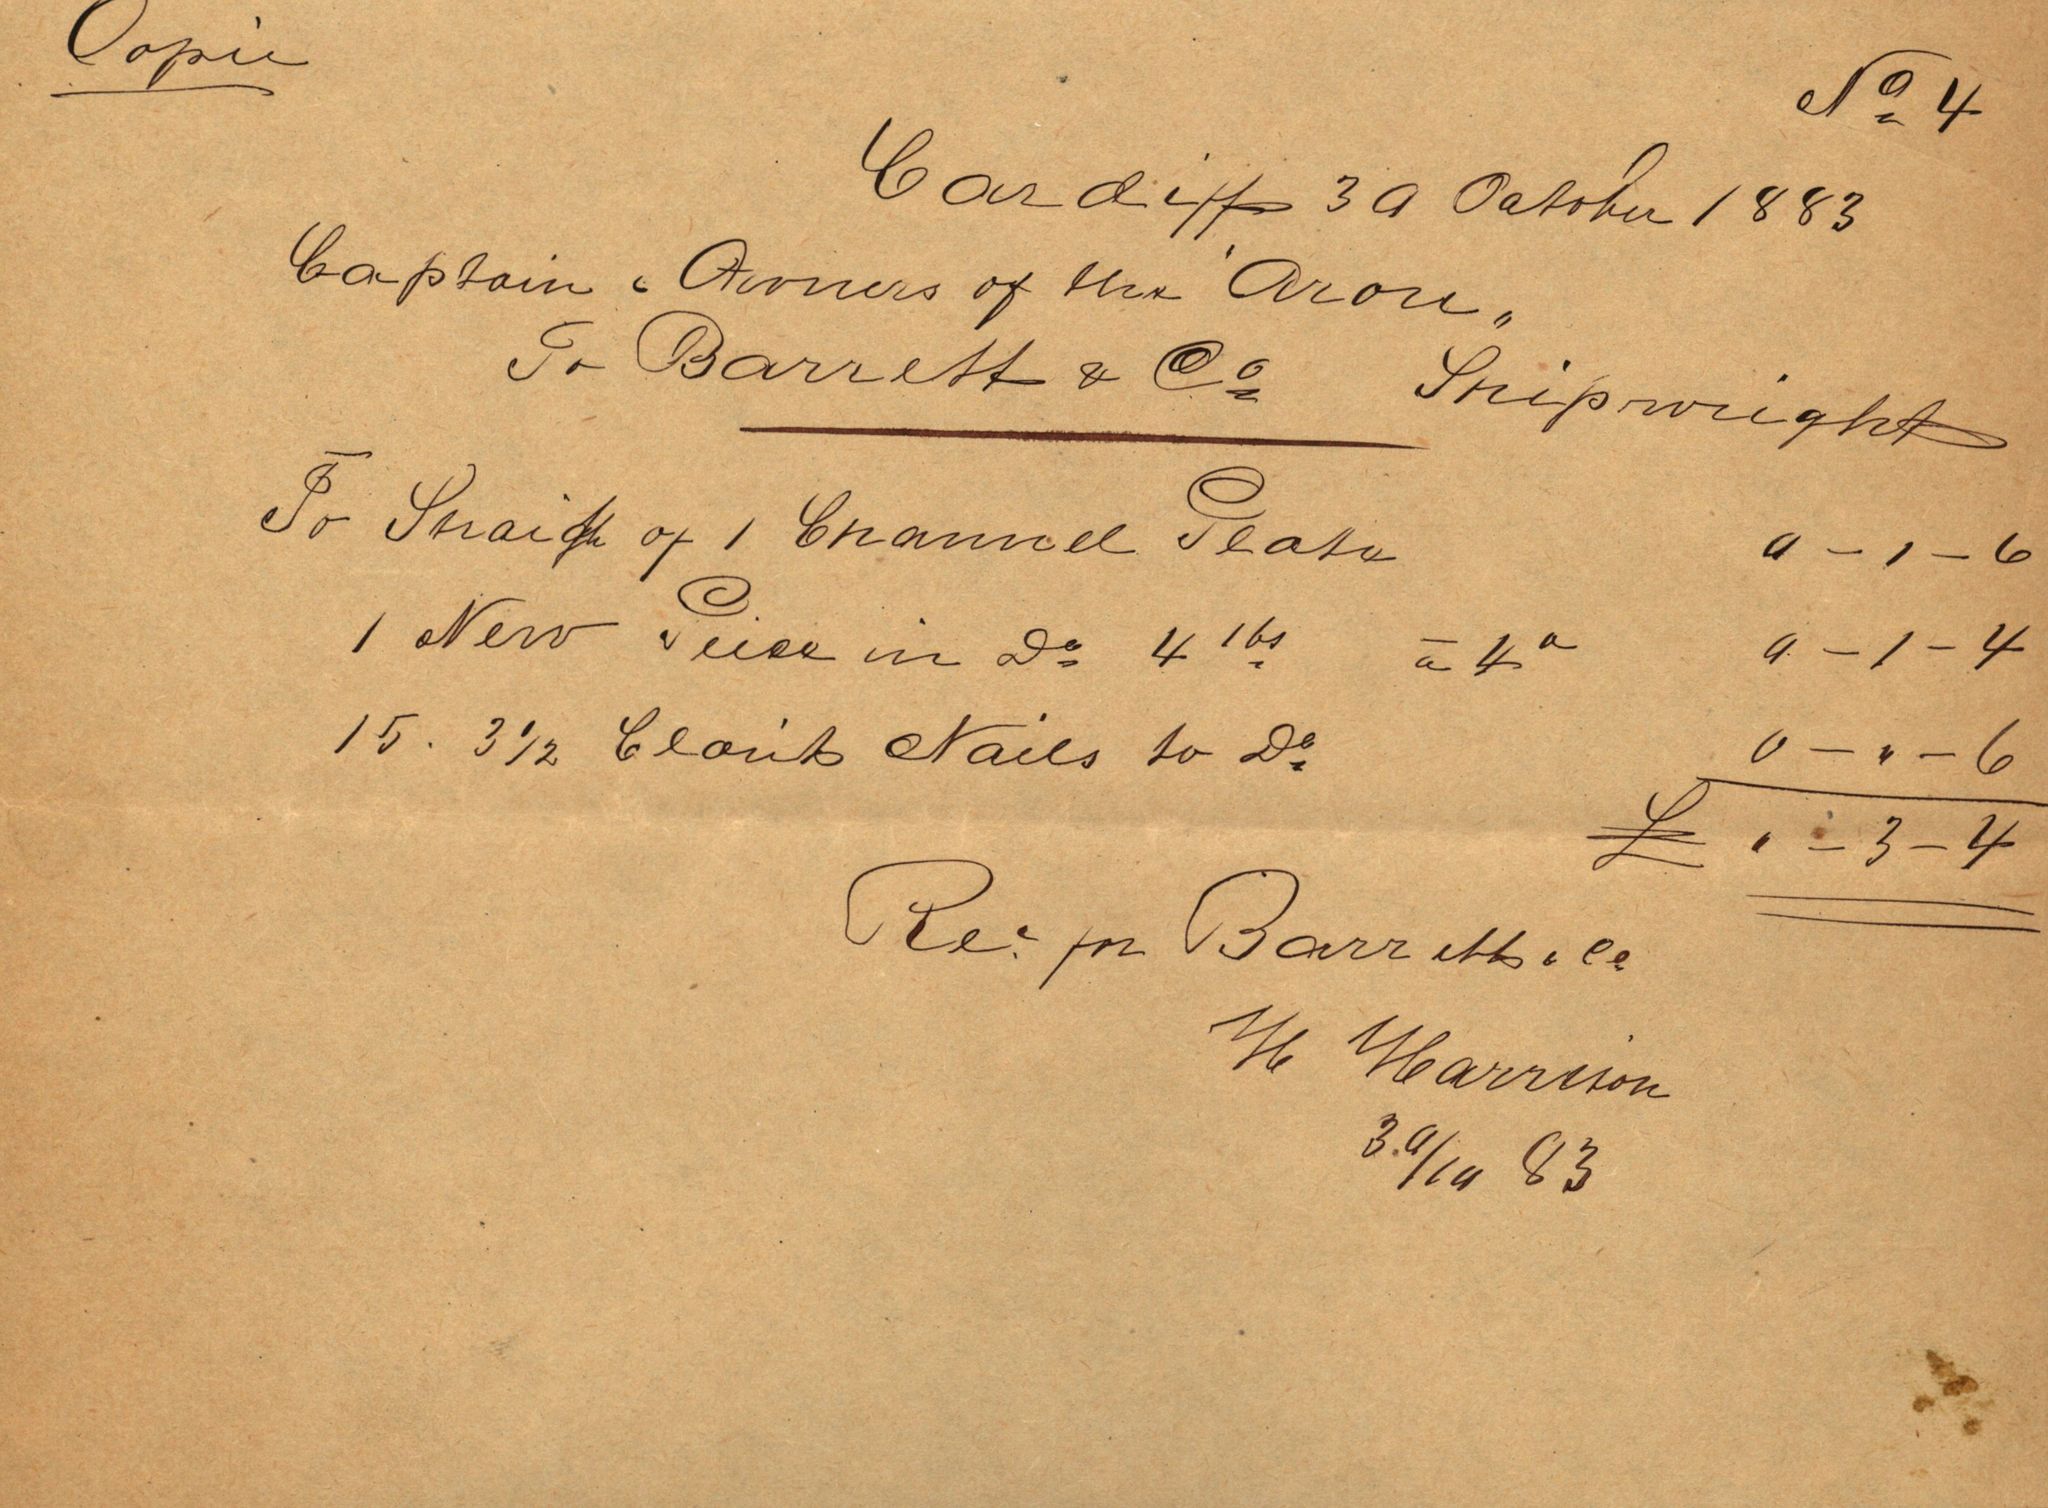 Copie
No 4
Cardiff 30 October 1883
Captain & Owners of the "Aron"
To Barrett & Co Shipwright
To Straigh of 1 Channel Plate 0 - 1 - 6
1 New Peice in Do 4 lbs a 4d 0 - 1 - 4
15. 3 1/2 Clout Nails to Do 0 - " - 6
£ " - 3 - 4
Rec. for Barrett & Co
H Harrison
30/10 83